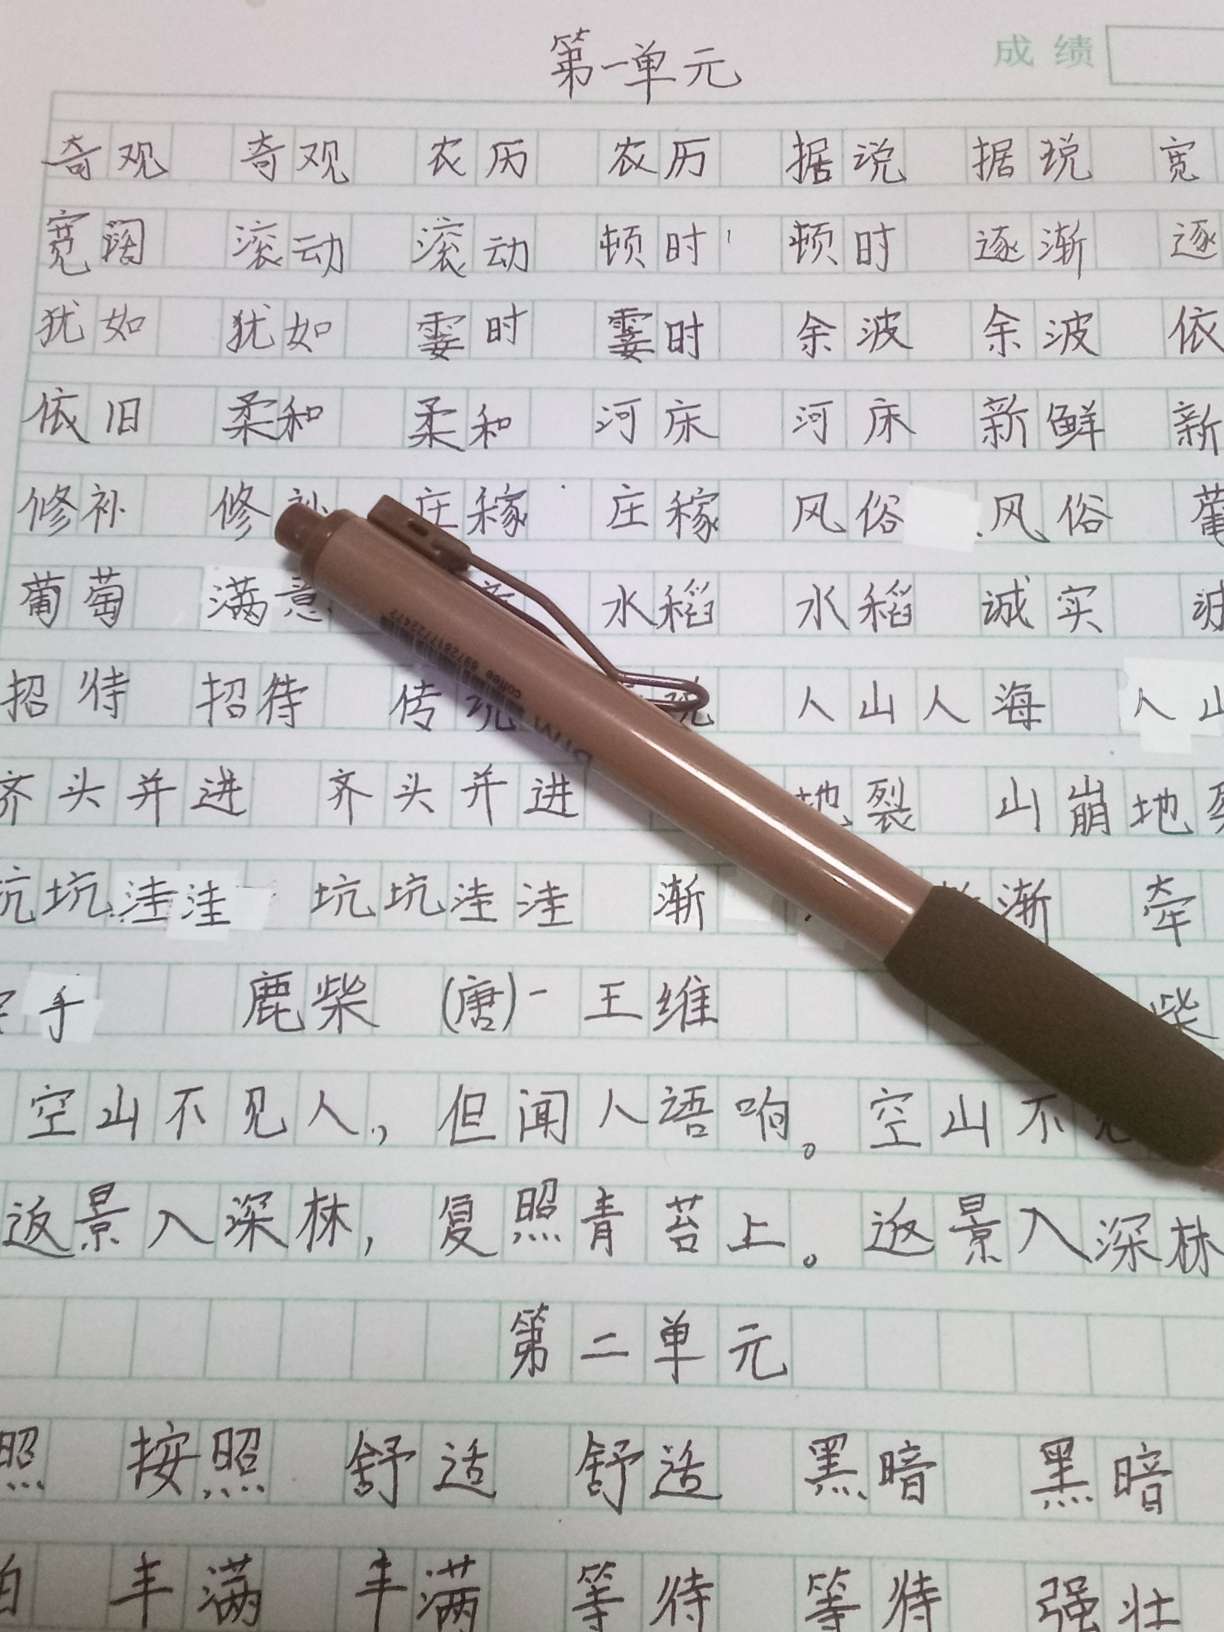 第一单元
成绩
奇观 奇观 农历 农历 据说 据说 宽
宽阔 滚动 滚动 顿时 顿时 逐渐 逐
犹如 犹如 霎时 霎时 余波 余波 依
依旧 柔和 柔和 河床 河床 新鲜 新
修补 修补 庄稼 庄稼 风俗 风俗 葡
葡萄 满意 水稻 水稻 诚实 诚
招待 招待 传说 说 人山人海 人山
齐头并进 齐头并进 地裂 山崩地裂
坑坑洼洼 坑坑洼洼 渐 渐 牵
手 鹿柴 (唐)- 王维 柴
空山不见人, 但闻人语响。空山不见
返景入深林, 复照青苔上。返景入深林
第二单元
照 按照 舒适 舒适 黑暗 黑暗
丰满 丰满 等待 等待 强壮